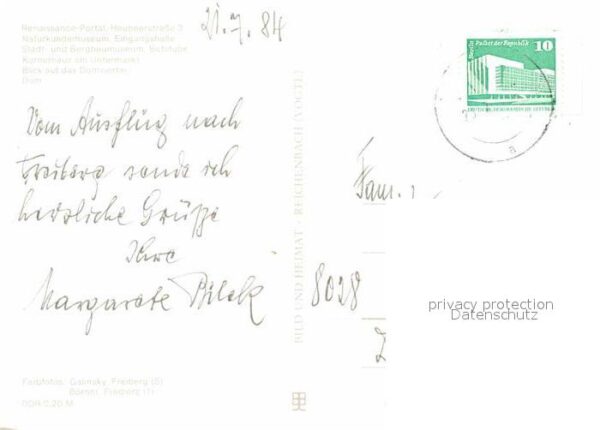 21.7.84
Renaissance-Portal, Heubnerstraße 3
Naturkundemuseum, Eingangshalle
Stadt- und Bergbaumuseum, Betstube
Kornerhaus am Untermarkt
Blick auf das Domviertel
Dom
Vom Ausflug nach
Freiberg sende ich
herzliche Grüße
Ihre
Margarete Bilek
Farbfotos: Galinsky, Freiberg (5)
Borost, Freiberg (1)
DDR 0,20 M
BILD UND HEIMAT · REICHENBACH (VOGTL)
Berlin Palast der Republik
10
DEUTSCHE DEMOKRATISCHE REPUBLIK
a
Fam.
8028
privacy protection
Datenschutz